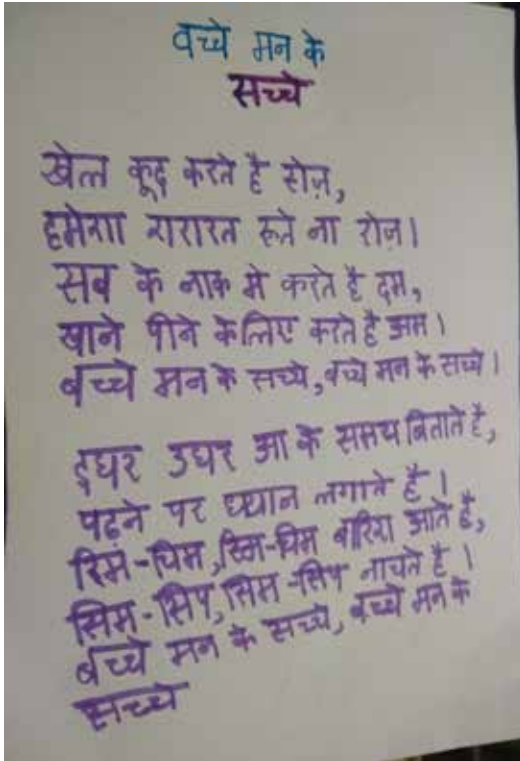 बच्चे मन के
सच्चे
खेल कूद करते है रोज़,
हमेशा शरारत ना रोज़।
सब के नाक मे करते है दम,
खाने पीने केलिए करते है।
बच्चे मन के सच्चे, बच्चे मन के सच्चे।
इधर उधर आ के समय बिताते है,
पढ़ने पर ध्यान लगाते है।
रिम-घिम, रिम-घिम बारिश आते है,
सिम-सिप, सिम-सिप नाचते है।
बच्चे मन के सच्चे, बच्चे मन के
सच्चे